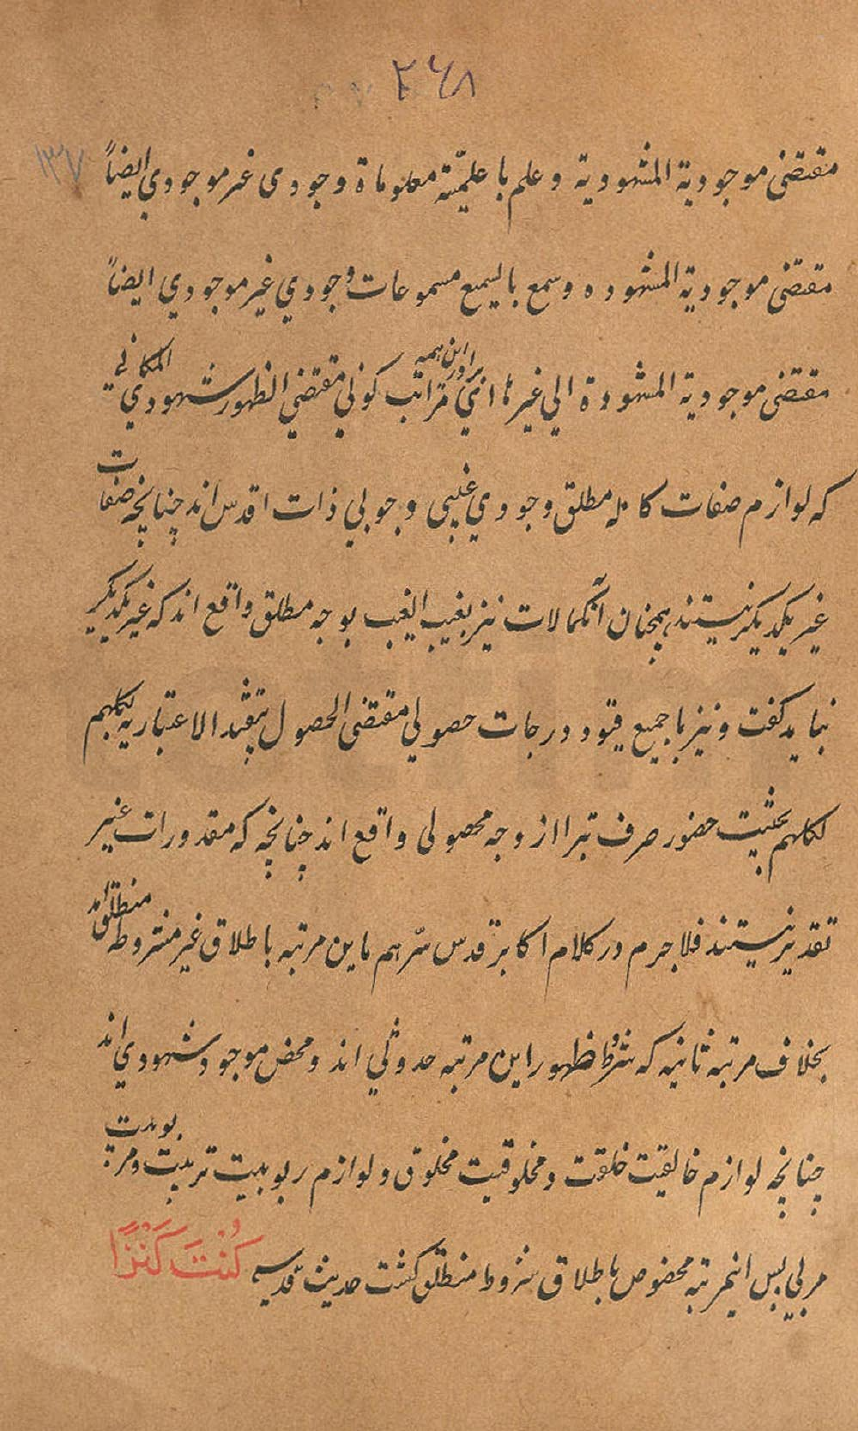 ۲۶۸
۱۳۷
مقتضی موجودیة المشهودیة و علم با علمیّته معلوماة وجودی غیر موجودي ایضاً
مقتضی موجودیة المشهوده و سمع بالسمیع مسموعات وجودي غیر موجودي ایضاً
مقتضی موجودیة المشهودة الي غیرها از مراتب کوني مقتضي الظهور شهودي المکاني
که لوازم صفات کامله مطلق وجودي غیبی وجوبي ذات اقدس اند چنانچه صفات
غیر یکدیکر نیستند همچنان آنکمالات نیز بغیب الغیب بوجه مطلق واقع اند که غیر یکدیکر
نباید کفت و نیز با جمیع قیود درجات حصولي مقتضی الحصول بتقید الاعتباریه لکلهم
لکلهم بحثیت حضور صرف تبرا از وجه محصولی واقع اند چنانچه که مقدورات غیر
تقدیر نیستند فلا جرم در کلام اکابر قدس سرّهم باین مرتبه باطلاق غیر مشروط منطلق اند
بخلاف مرتبه ثانیه که شروط ظهور این مرتبه حدوثي اند و محض موجود شهودي اند
چنانچه لوازم خالقیت خلقت و مخلوقیت مخلوق و لوازم ربوبیت تربیت و مربوبیت
مربي پس اینمرتبه مخصوص باطلاق شروط منطلق کشت حدیث قدسیه کُنْتَ کَنْزًا